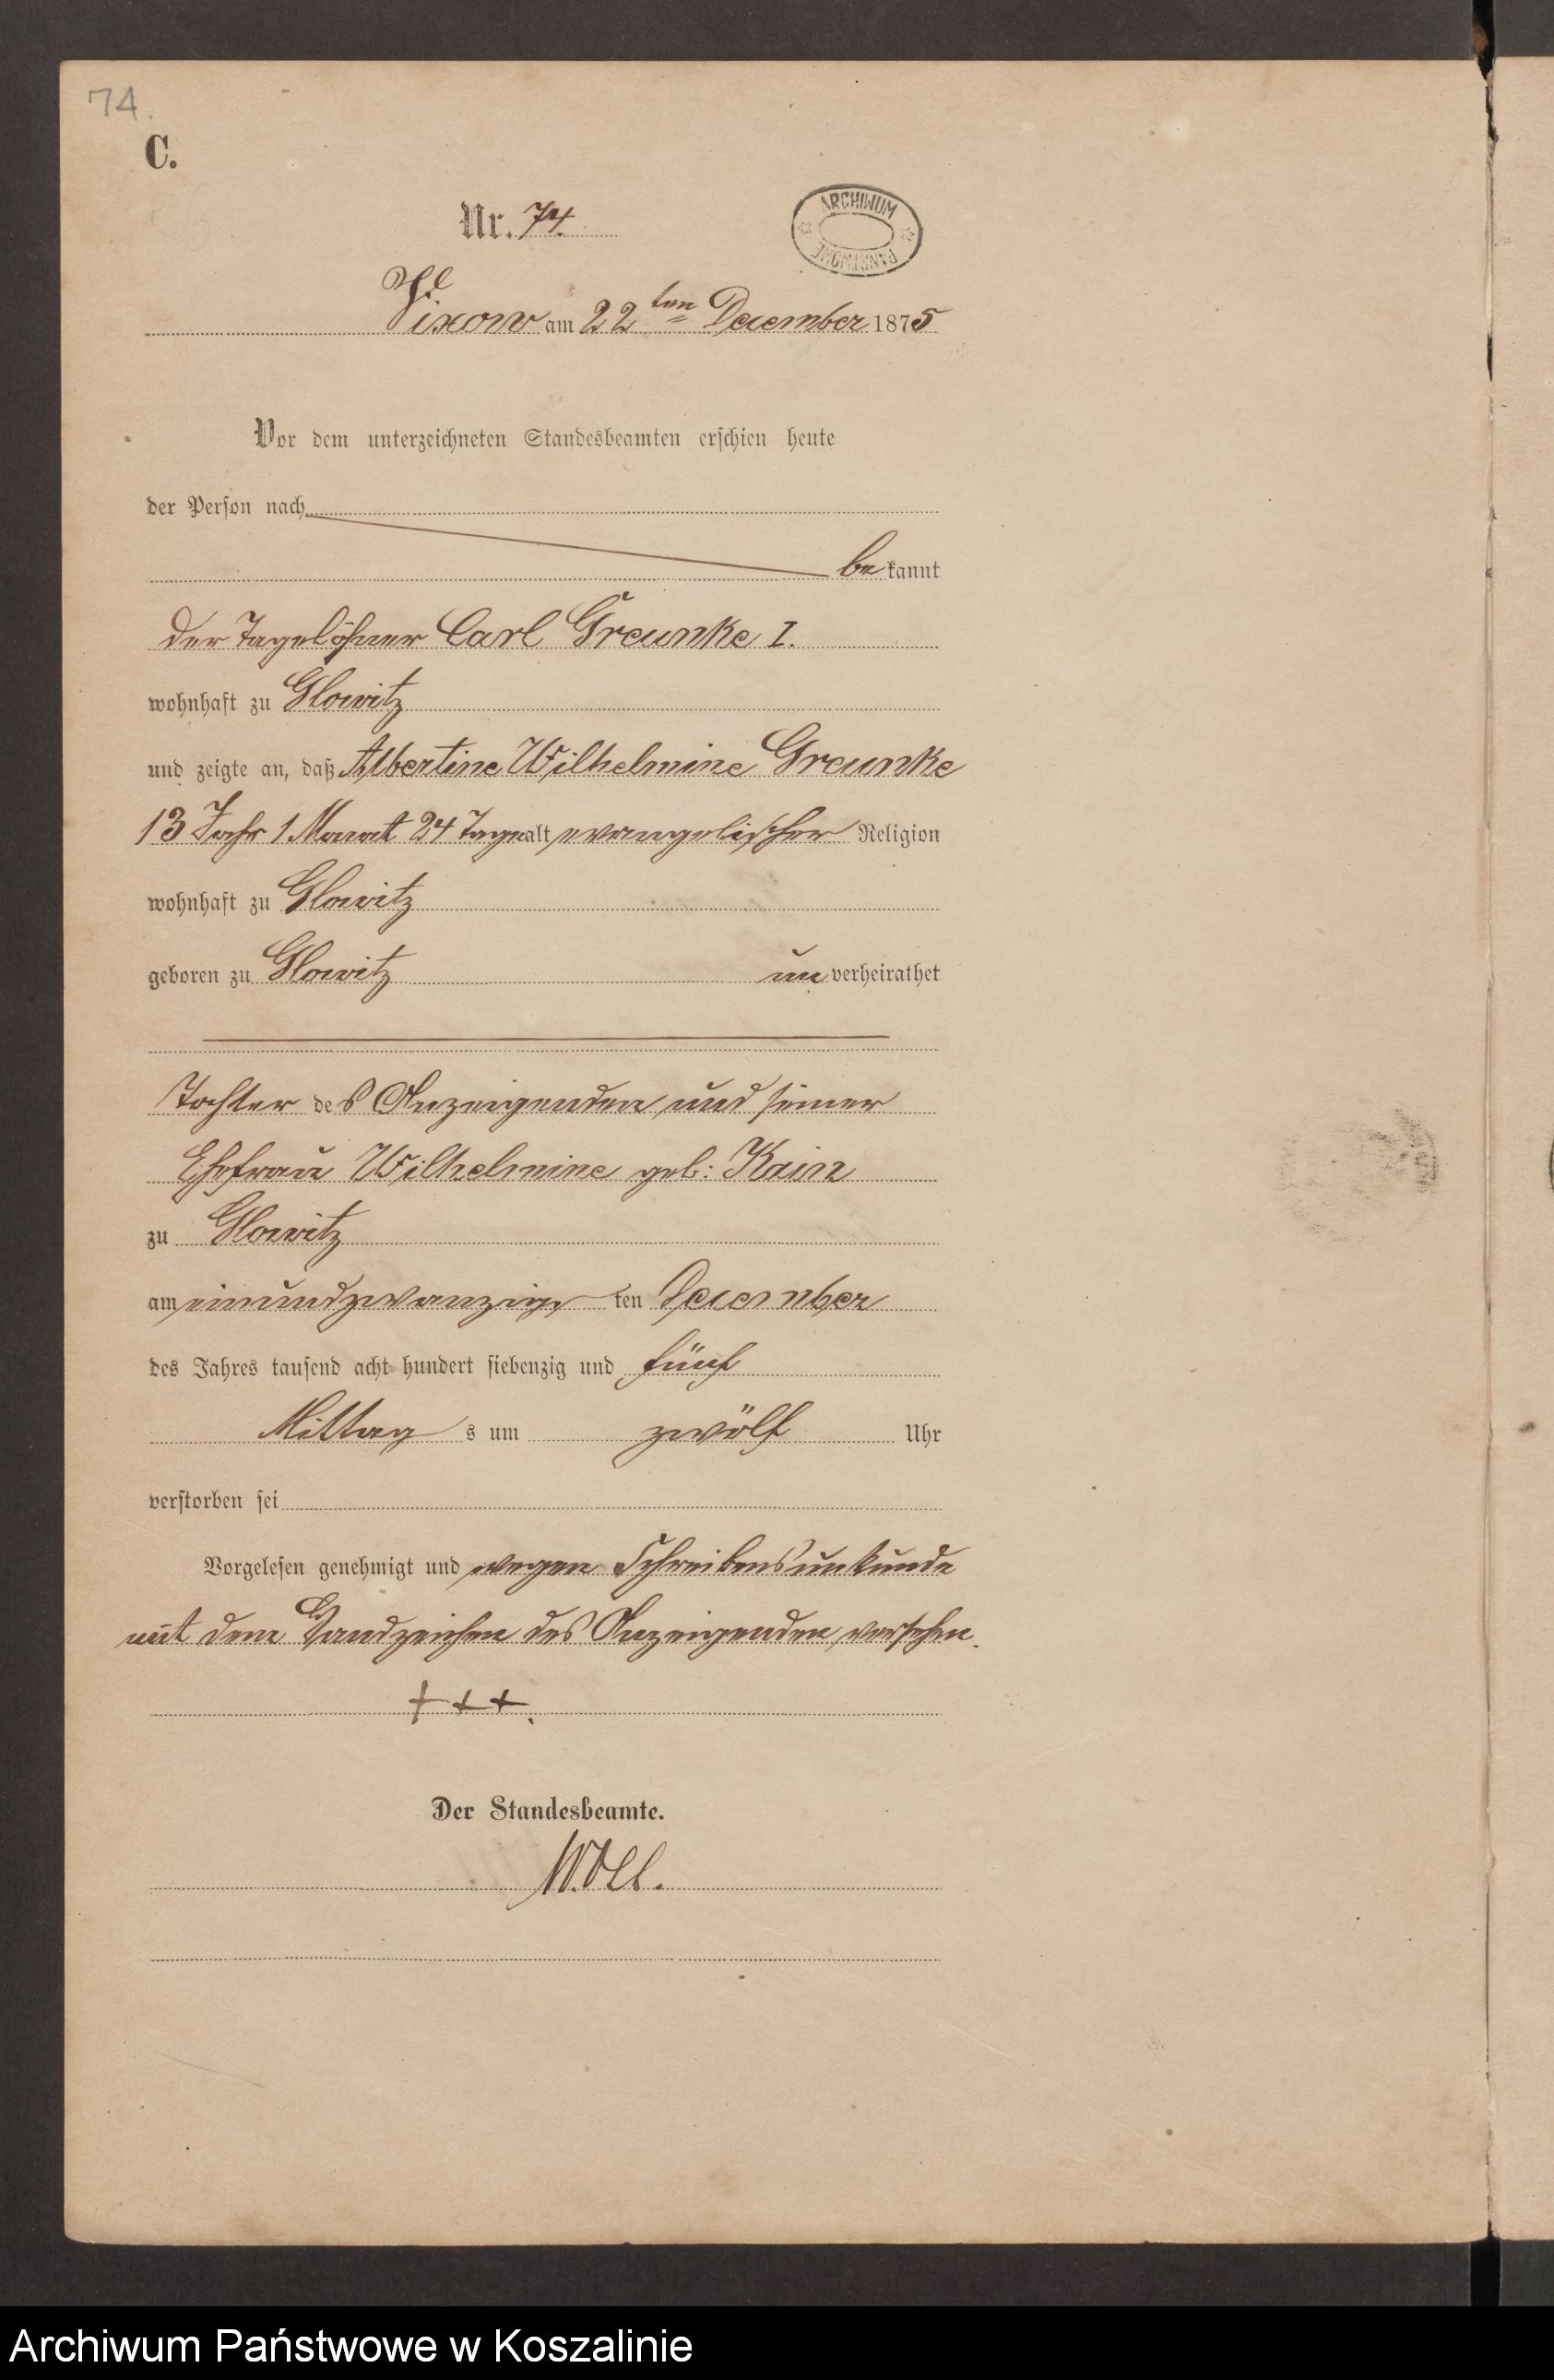 74.
C.
Nr. 74.
ARCHIWUM
PAŃSTWOWE
Vixow am 22ten December 1875
Vor dem unterzeichneten Standesbeamten erschien heute
der Person nach
bekannt
der Tagelöhner Carl Greunke I.
wohnhaft zu Glowitz
und zeigte an, daß Albertine Wilhelmine Greunke
13 Jahr 1 Monat 24 Tage alt evangelischer Religion
wohnhaft zu Glowitz
geboren zu Glowitz unverheirathet
Tochter des Anzeigenden und seiner
Ehefrau Wilhelmine geb: Kain
zu Glowitz
am einundzwanzigsten December
des Jahres tausend acht hundert siebenzig und fünf
Mittags um zwölf Uhr
verstorben sei
Vorgelesen genehmigt und wegen Schreibensunkunde
mit dem Handzeichen des Anzeigenden versehen.
+++.
Der Standesbeamte.
Archiwum Państwowe w Koszalinie